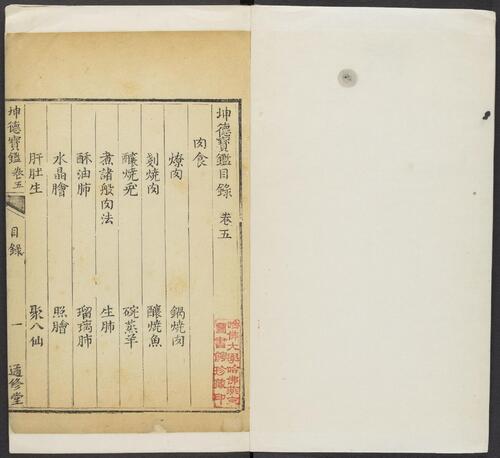 坤德寶鑑目錄 卷五
肉食
燎肉 鍋燒肉
剗燒肉 釀燒魚
釀燒兔 碗蒸羊
煮諸般肉法 生肺
酥油肺 瑠璃肺
水晶膾 照膾
肝肚生 聚八仙
坤德寶鑑 卷五 目錄 一 遹修堂
哈佛大學哈佛燕京
圖書館珍藏印